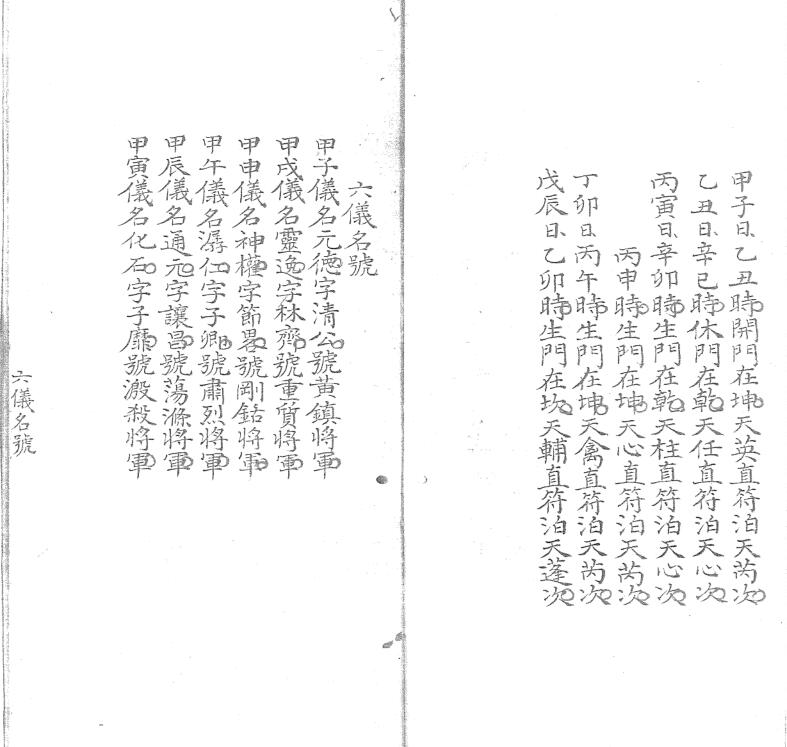 甲子日乙丑時開門在坤天英直符泊天芮次
乙丑日辛巳時休門在乾天任直符泊天心次
丙寅日辛卯時生門在乾天柱直符泊天心次
丙申時生門在坤天心直符泊天芮次
丁卯日丙午時生門在坤天禽直符泊天芮次
戊辰日乙卯時生門在坎天輔直符泊天蓬次
六儀名號
甲子儀名元德字清公號黃鎮將軍
甲戌儀名靈逸字林齊號重質將軍
甲申儀名神權字節畧號剛鈷將軍
甲午儀名潺仁字子卿號肅烈將軍
甲辰儀名通元字讓昌號蕩滌將軍
甲寅儀名化石字子靡號激殺將軍
六儀名號